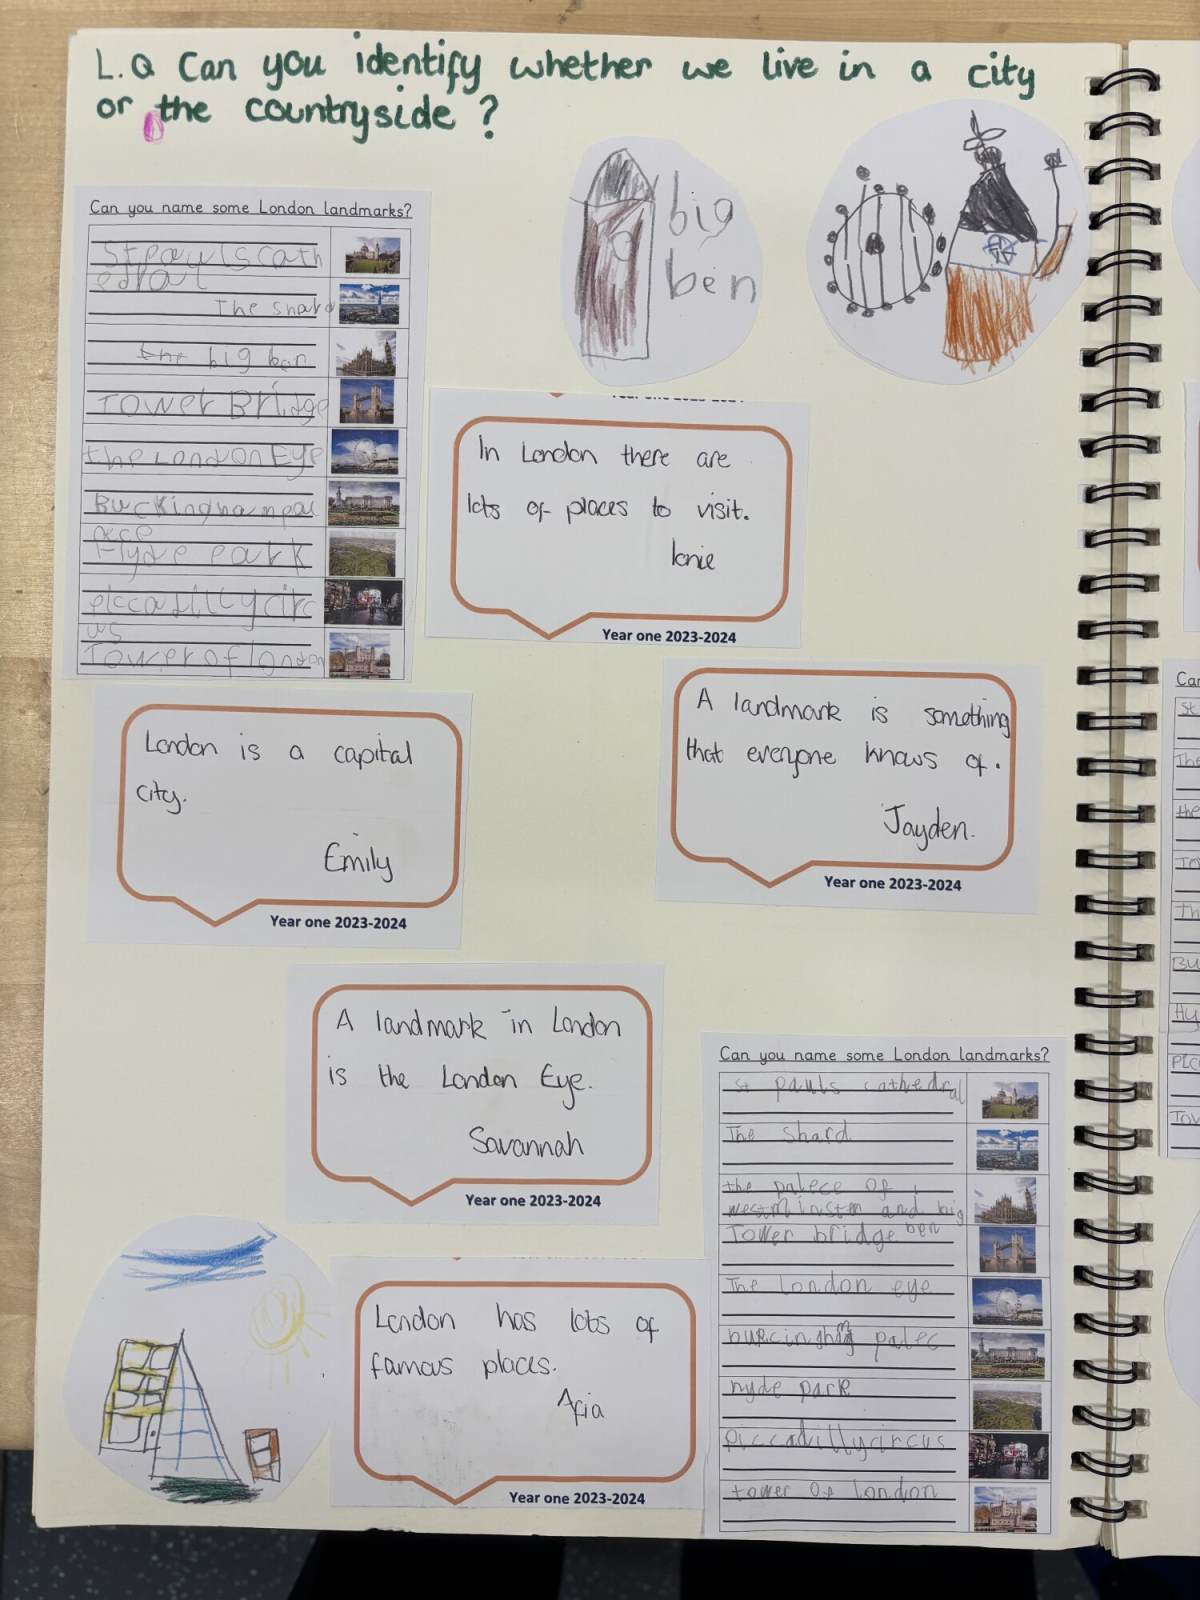 L.Q Can you identify whether we live in a city
or the countryside?
big
ben
Can you name some London landmarks?
St pauls cath
edral
The shard
the big ben
Tower Bridge
the London Eye
Buckinghampal
ace
Hyde Park
piccadillycirc
us
Tower of london
In London there are
lots of places to visit.
Year one 2023-2024
A landmark is something
that everyone knows of.
Jayden.
Year one 2023-2024
London is a capital
city.
Emily
Year one 2023-2024
A landmark in London
is the London Eye.
Savannah
Year one 2023-2024
London has lots of
famous places.
Afia
Year one 2023-2024
Can you name some London landmarks?
st pauls cathedral
The shard
the palece of
westminster and big
ben
Tower bridge
The london eye
palec
hyde park
piccadillycircus
tower of london